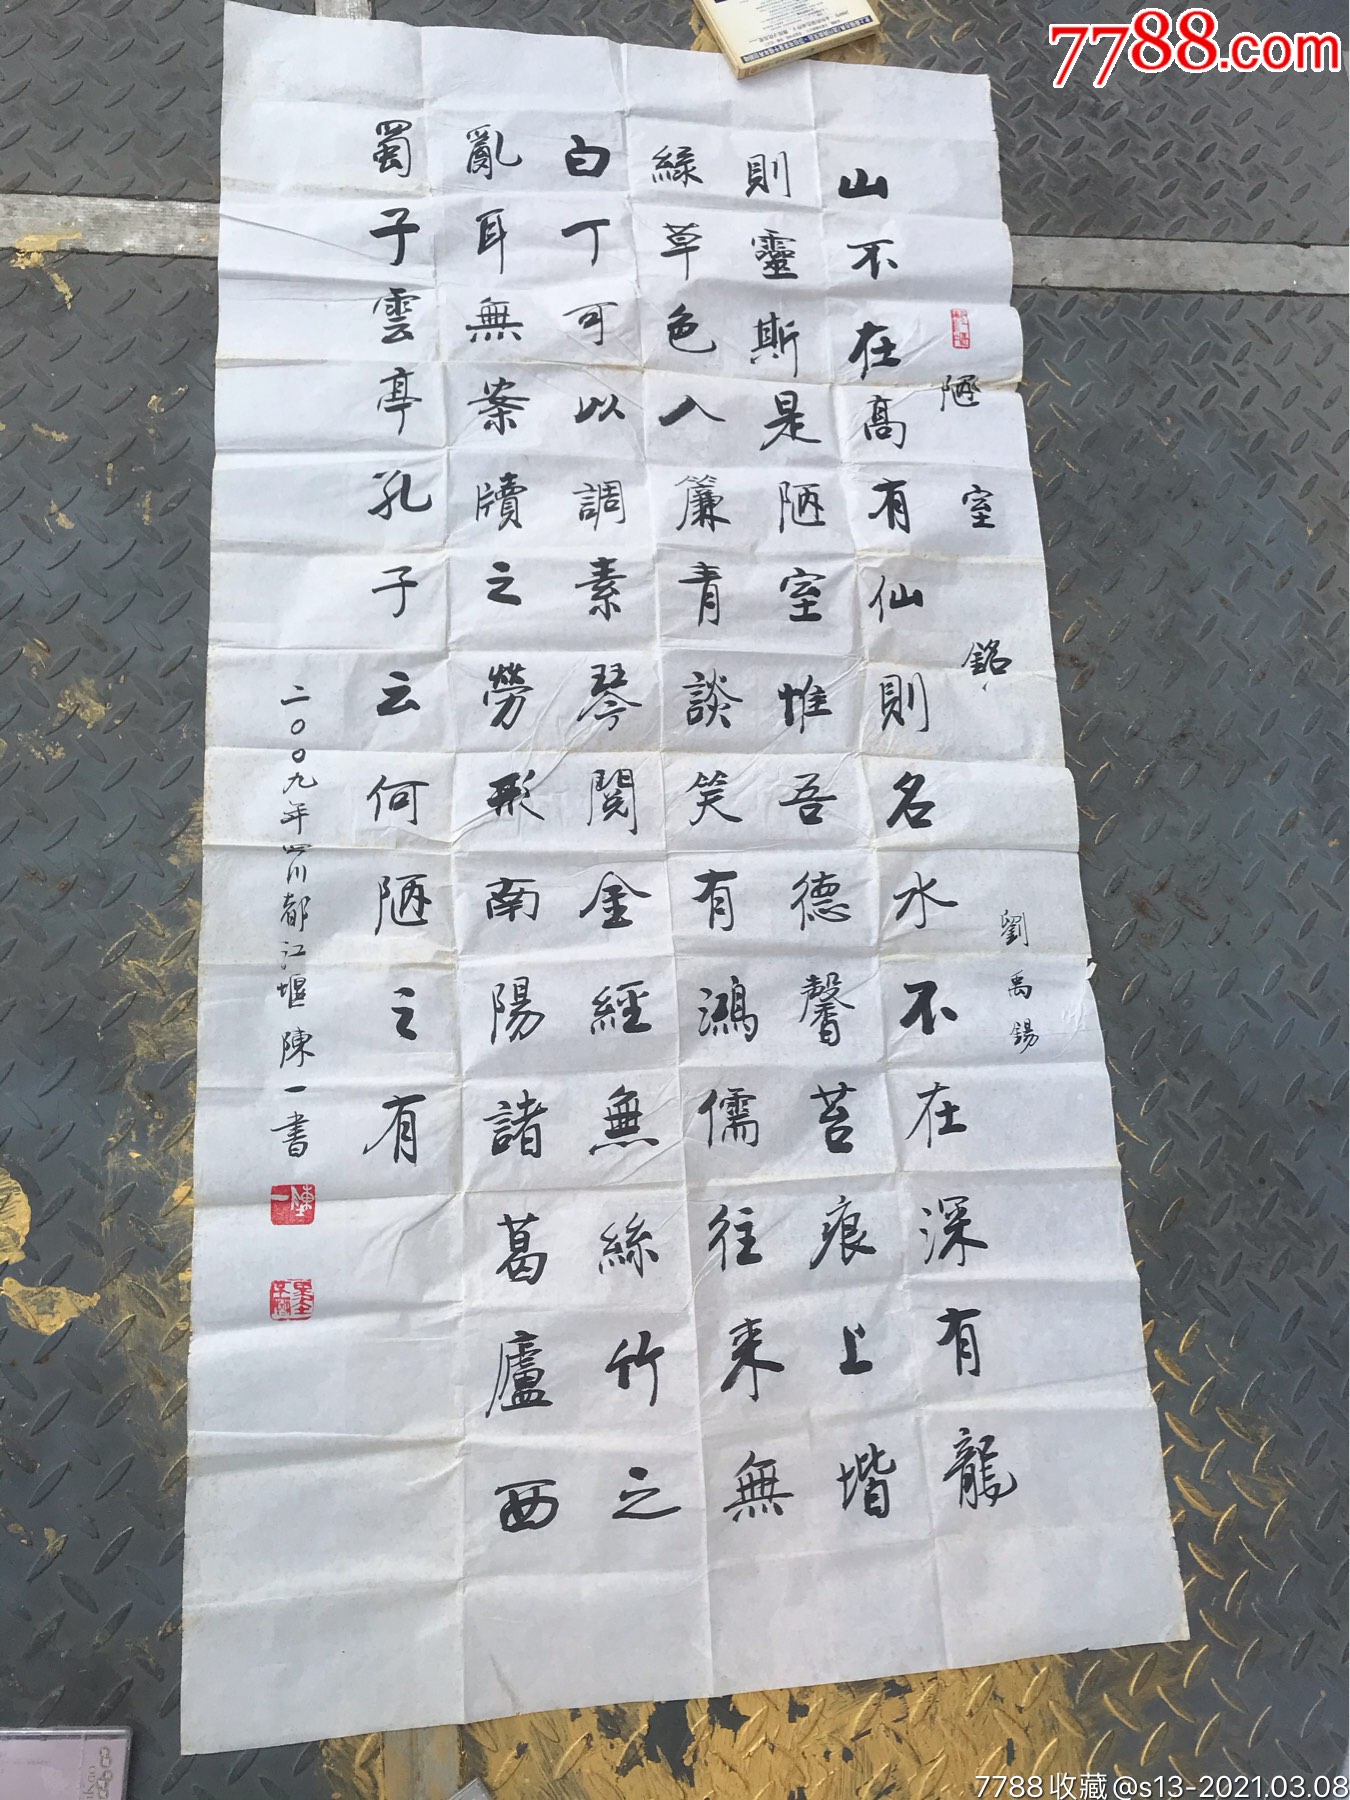 7788.com
陋室銘 劉禹錫
山不在髙有仙則名水不在深有龍
則靈斯是陋室惟吾德馨苔痕上堦
綠草色入簾青談笑有鴻儒往来無
白丁可以調素琴閱金經無絲竹之
亂耳無案牘之勞形南陽諸葛廬西
蜀子雲亭孔子云何陋之有
二〇〇九年四川都江堰陳一書
陳一
7788收藏@s13-2021.03.08